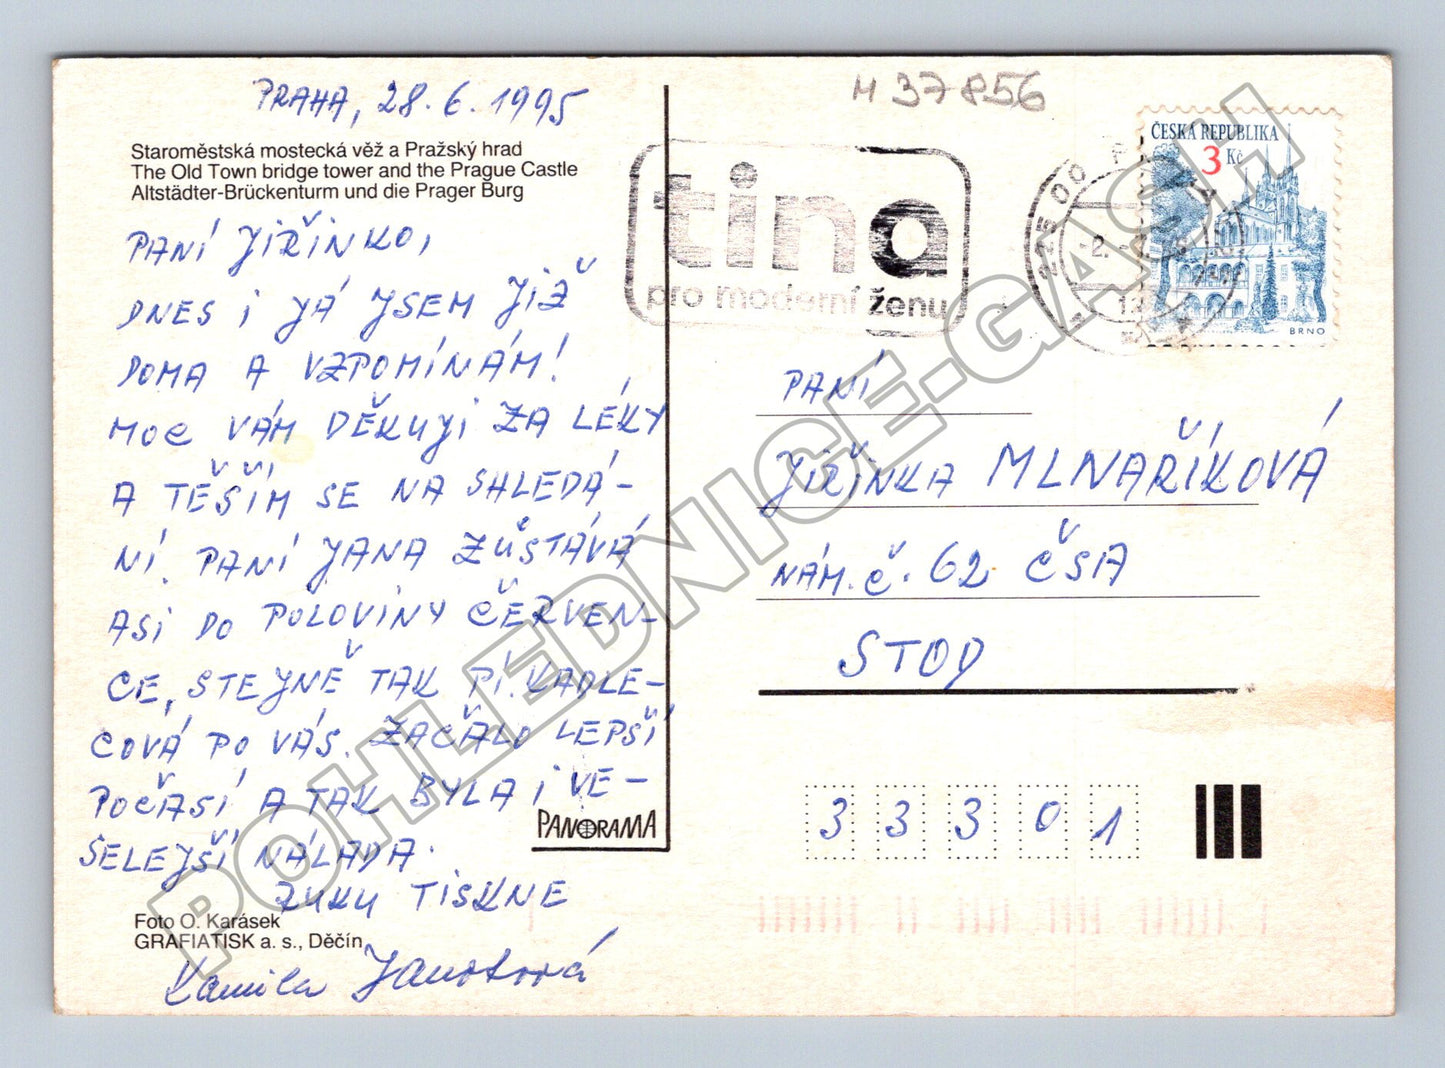 PRAHA, 28.6.1995
Staroměstská mostecká věž a Pražský hrad
The Old Town bridge tower and the Prague Castle
Altstädter-Brückenturm und die Prager Burg
PANÍ JIŘINKO,
DNES I JÁ JSEM JIŽ
DOMA A VZPOMÍNÁM!
MOC VÁM DĚKUJI ZA LÉKY
A TĚŠÍM SE NA SHLEDÁ-
NÍ. PANÍ JANA ZŮSTÁVÁ
ASI DO POLOVINY ČERVEN-
CE, STEJNĚ TAK PÍ. KADLE-
COVÁ PO VÁS. ZAČALO LEPŠÍ
POČASÍ A TAK BYLA I VE-
SELEJŠÍ NÁLADA.
RUKU TISKNE
Kamila
PANORAMA
Foto O. Karásek
GRAFIATISK a. s., Děčín
H 37856
tina
pro moderní ženu
ČESKÁ REPUBLIKA
3 Kč
BRNO
PANÍ
JIŘINKA MLNAŘÍKOVÁ
NÁM. Č. 62 ČSA
STOD
3 3 3 0 1
POHLEDNICE-GASH